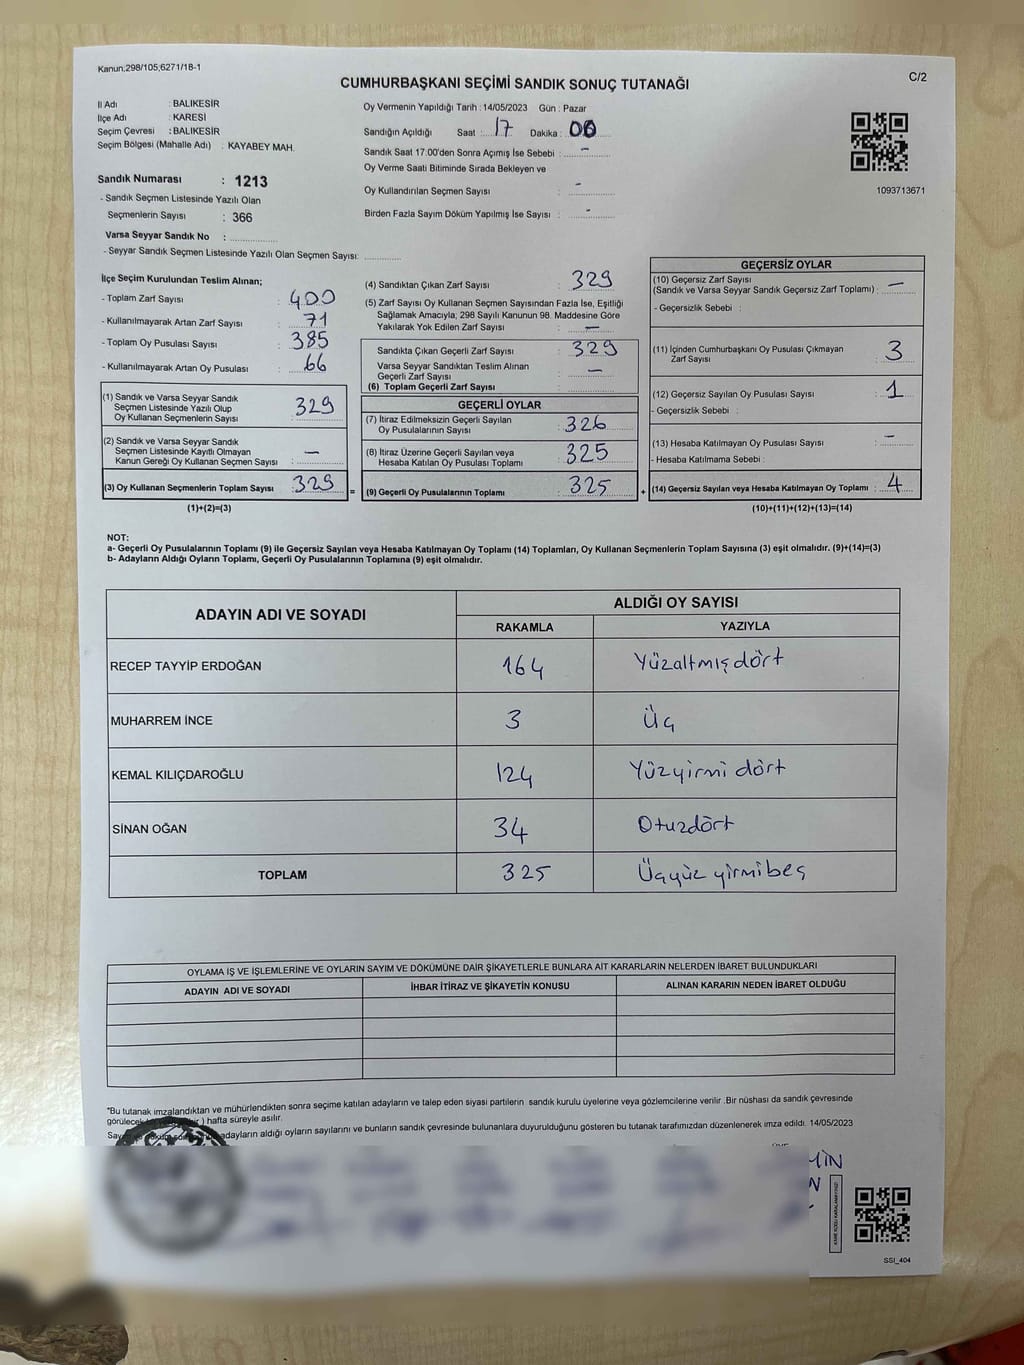 Kanun:298/105;6271/18-1
C/2
CUMHURBAŞKANI SEÇİMİ SANDIK SONUÇ TUTANAĞI
İl Adı : BALIKESİR
İlçe Adı : KARESİ
Seçim Çevresi : BALIKESİR
Seçim Bölgesi (Mahalle Adı) : KAYABEY MAH.
Sandık Numarası : 1213
- Sandık Seçmen Listesinde Yazılı Olan
Seçmenlerin Sayısı : 366
Varsa Seyyar Sandık No :
- Seyyar Sandık Seçmen Listesinde Yazılı Olan Seçmen Sayısı:
Oy Vermenin Yapıldığı Tarih : 14/05/2023 Gün : Pazar
Sandığın Açıldığı Saat : 17 Dakika : 00
Sandık Saat 17.00'den Sonra Açımış İse Sebebi : -
Oy Verme Saati Bitiminde Sırada Bekleyen ve
Oy Kullandırılan Seçmen Sayısı : -
Birden Fazla Sayım Döküm Yapılmış İse Sayısı : -
1093713671
İlçe Seçim Kurulundan Teslim Alınan;
- Toplam Zarf Sayısı : 400
- Kullanılmayarak Artan Zarf Sayısı : 71
- Toplam Oy Pusulası Sayısı : 385
- Kullanılmayarak Artan Oy Pusulası : 66
(1) Sandık ve Varsa Seyyar Sandık
Seçmen Listesinde Yazılı Olup
Oy Kullanan Seçmenlerin Sayısı : 329
(2) Sandık ve Varsa Seyyar Sandık
Seçmen Listesinde Kayıtlı Olmayan
Kanun Gereği Oy Kullanan Seçmen Sayısı : —
(3) Oy Kullanan Seçmenlerin Toplam Sayısı : 329
(1)+(2)=(3)
(4) Sandıktan Çıkan Zarf Sayısı : 329
(5) Zarf Sayısı Oy Kullanan Seçmen Sayısından Fazla İse, Eşitliği
Sağlamak Amacıyla; 298 Sayılı Kanunun 98. Maddesine Göre
Yakılarak Yok Edilen Zarf Sayısı : —
Sandıkta Çıkan Geçerli Zarf Sayısı : 329
Varsa Seyyar Sandıktan Teslim Alınan
Geçerli Zarf Sayısı : —
(6) Toplam Geçerli Zarf Sayısı :
GEÇERLİ OYLAR
(7) İtiraz Edilmeksizin Geçerli Sayılan
Oy Pusulalarının Sayısı : 326
(8) İtiraz Üzerine Geçerli Sayılan veya
Hesaba Katılan Oy Pusulası Toplamı : 325
= (9) Geçerli Oy Pusulalarının Toplamı : 325 +
GEÇERSİZ OYLAR
(10) Geçersiz Zarf Sayısı
(Sandık ve Varsa Seyyar Sandık Geçersiz Zarf Toplamı) : —
- Geçersizlik Sebebi :
(11) İçinden Cumhurbaşkanı Oy Pusulası Çıkmayan
Zarf Sayısı : 3
(12) Geçersiz Sayılan Oy Pusulası Sayısı : 1
- Geçersizlik Sebebi :
(13) Hesaba Katılmayan Oy Pusulası Sayısı : -
- Hesaba Katılmama Sebebi :
(14) Geçersiz Sayılan veya Hesaba Katılmayan Oy Toplamı : 4
(10)+(11)+(12)+(13)=(14)
NOT:
a- Geçerli Oy Pusulalarının Toplamı (9) ile Geçersiz Sayılan veya Hesaba Katılmayan Oy Toplamı (14) Toplamları, Oy Kullanan Seçmenlerin Toplam Sayısına (3) eşit olmalıdır. (9)+(14)=(3)
b- Adayların Aldığı Oyların Toplamı, Geçerli Oy Pusulalarının Toplamına (9) eşit olmalıdır.
ADAYIN ADI VE SOYADI
ALDIĞI OY SAYISI
RAKAMLA YAZIYLA
RECEP TAYYİP ERDOĞAN 164 Yüzaltmışdört
MUHARREM İNCE 3 Üç
KEMAL KILIÇDAROĞLU 124 Yüzyirmi dört
SİNAN OĞAN 34 Otuzdört
TOPLAM 325 Üçyüz yirmibeş
OYLAMA İŞ VE İŞLEMLERİNE VE OYLARIN SAYIM VE DÖKÜMÜNE DAİR ŞİKAYETLERLE BUNLARA AİT KARARLARIN NELERDEN İBARET BULUNDUKLARI
ADAYIN ADI VE SOYADI İHBAR İTİRAZ VE ŞİKAYETİN KONUSU ALINAN KARARIN NEDEN İBARET OLDUĞU
"Bu tutanak imzalandıktan ve mühürlendikten sonra seçime katılan adayların ve talep eden siyasi partilerin sandık kurulu üyelerine veya gözlemcilerine verilir .Bir nüshası da sandık çevresinde
görülecek ) hafta süreyle asılır.
adayların aldığı oyların sayılarını ve bunların sandık çevresinde bulunanlara duyurulduğunu gösteren bu tutanak tarafımızdan düzenlenerek imza edildi. 14/05/2023
SSI_404